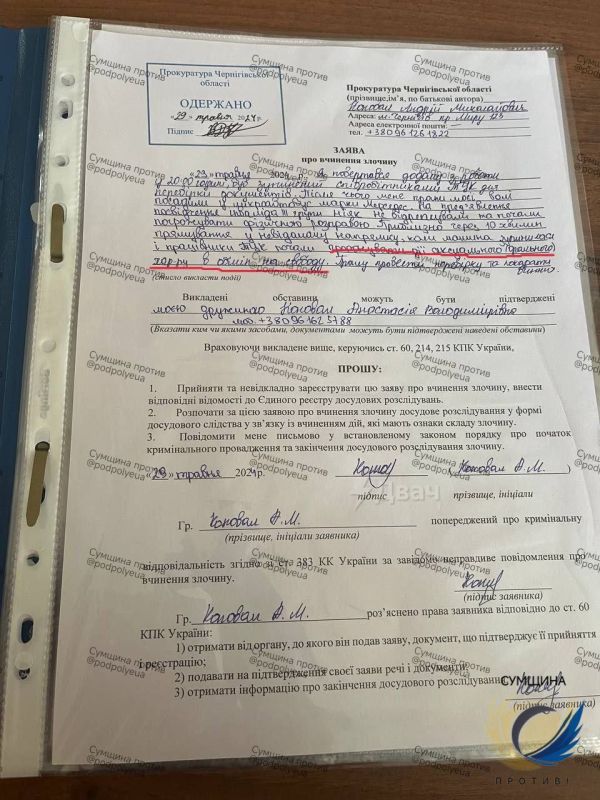 Прокуратура Чернігівської
області
ОДЕРЖАНО
«29» травня 2024р.
Підпис
Прокуратура Чернігівської області
(прізвище,ім'я, по батькові автора)
Коновал Андрій Миколайович
Адреса: м. Чернігів пр Миру
Адреса електронної пошти:
тел. +380961261822
ЗАЯВА
про вчинення злочину
«29» травня 2024р. я повертався додому з роботи
о 20:00 годині, був зупинений співробітниками ТЦК для
перевірки документів. Після чого мене проти моєї волі
посадили у мікроавтобус марки Мерседес. На пред'явлення
посвідчення інваліда III групи ніяк не відреагували та почали
погрожувати фізичною розправою. Приблизно через 10 хвилин
прямування у невідомому напрямку, коли машина зупинилася
і працівники ТЦК почали сексуального (орального)
хар-ру в обмін на свободу. Прошу провести перевірку та покарати
винних.
(Стисло викласти події)
Викладені обставини можуть бути підтверджені
моєю дружиною Коновал Анастасія Володимирівна
моб. +380961625788
(Вказати ким чи якими засобами, документами можуть бути підтверджені наведені обставини)
Враховуючи викладене вище, керуючись ст. 60, 214, 215 КПК України,
ПРОШУ:
1. Прийняти та невідкладно зареєструвати цю заяву про вчинення злочину, внести
відповідні відомості до Єдиного реєстру досудових розслідувань.
2. Розпочати за цією заявою про вчинення злочину досудове розслідування у формі
досудового слідства у зв'язку із вчиненням дій, які мають ознаки складу злочину.
3. Повідомити мене письмово у встановленому законом порядку про початок
кримінального провадження та закінчення досудового розслідування злочину.
«29» травня 2024р. (Коновал А.М.)
підпис прізвище, ініціали
Двач
Гр. Коновал А.М. попереджений про кримінальну
(прізвище, ініціали заявника)
відповідальність згідно зі ст. 383 КК України за завідомо неправдиве повідомлення про
вчинення злочину.
(підпис заявника)
Гр. Коновал А.М. роз'яснено права заявника відповідно до ст. 60
КПК України:
1) отримати від органу, до якого він подав заяву, документ, що підтверджує її прийняття
і реєстрацію;
2) подавати на підтвердження своєї заяви речі і документи;
3) отримати інформацію про закінчення досудового розслідування
(підпис заявника)
Сумщина против
@podpolyeua
СУМЩИНА
ПРОТИВІ